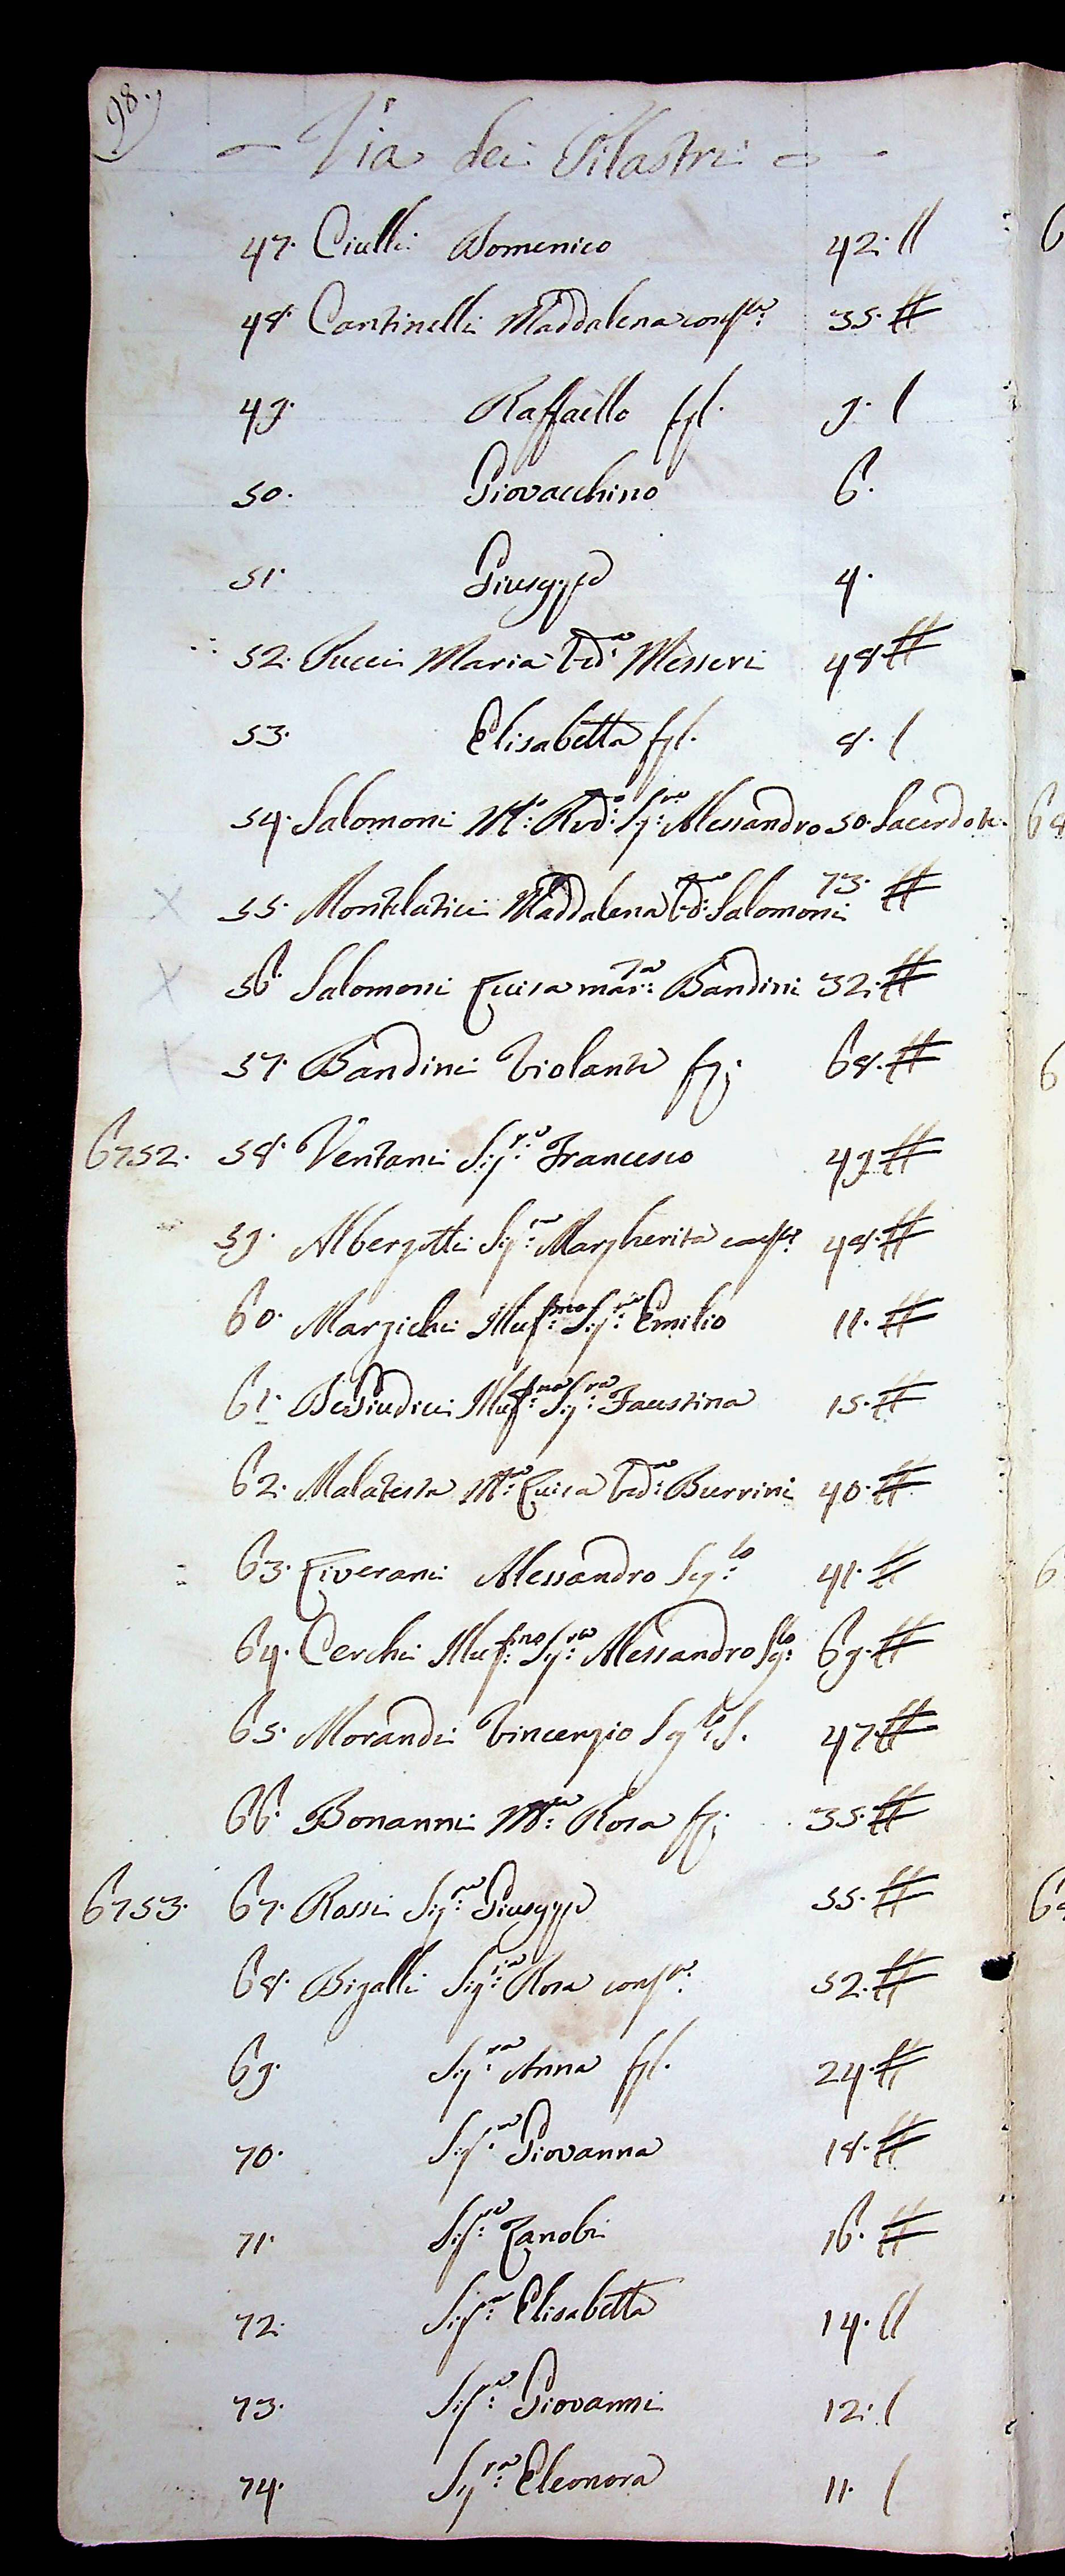 98.
Via dei Pilastri
47. Ciulli Domenico 42. //
48. Cantinelli Maddalena conste. 35. #
49. Raffaello fgl. 9. /
50. Giovacchino 6.
51. Giuseppe 4.
52. Pucci Maria Vda. Messeri 48. #
53. Elisabetta fgl. 8. /
54. Salomoni Mto. Rdo. Sigre. Alessandro 50. Sacerdote.
55. Montelatici Maddalena Vda. Salomoni 73. #
56. Salomoni Luisa marta. Bandini 32. #
57. Bandini Violante fg; 68. #
6752. 58. Ventani Sigre. Francesco 49. #
59. Albergotti Sigra. Margherita conste. 48. #
60. Marzichi Illusmo. Sigre. Emilio 11. #
61. DeGiudici Illusma. Sigra. Faustina 15. #
62. Malatesta Ma. Luisa Vda. Burrini 40. #
63. Liverani Alessandro Sglo. 41. #
64. Cerchi Illusmo. Sigre. Alessandro Sglo. 69. #
65. Morandi Vincenzio Sglo. S. 47. #
66. Bonanni Ma. Rosa fg; 35. #
6753. 67. Rossi Sigre. Giuseppe 55. #
68. Bigalli Sigra. Rosa conste. 52. #
69. Sigra. Anna fgl. 24. #
70. Sigra. Giovanna 18. #
71. Sigre. Zanobi 16. #
72. Sigra. Elisabetta 14. //
73. Sigre. Giovanni 12. /
74. Sigra. Eleonora 11. /